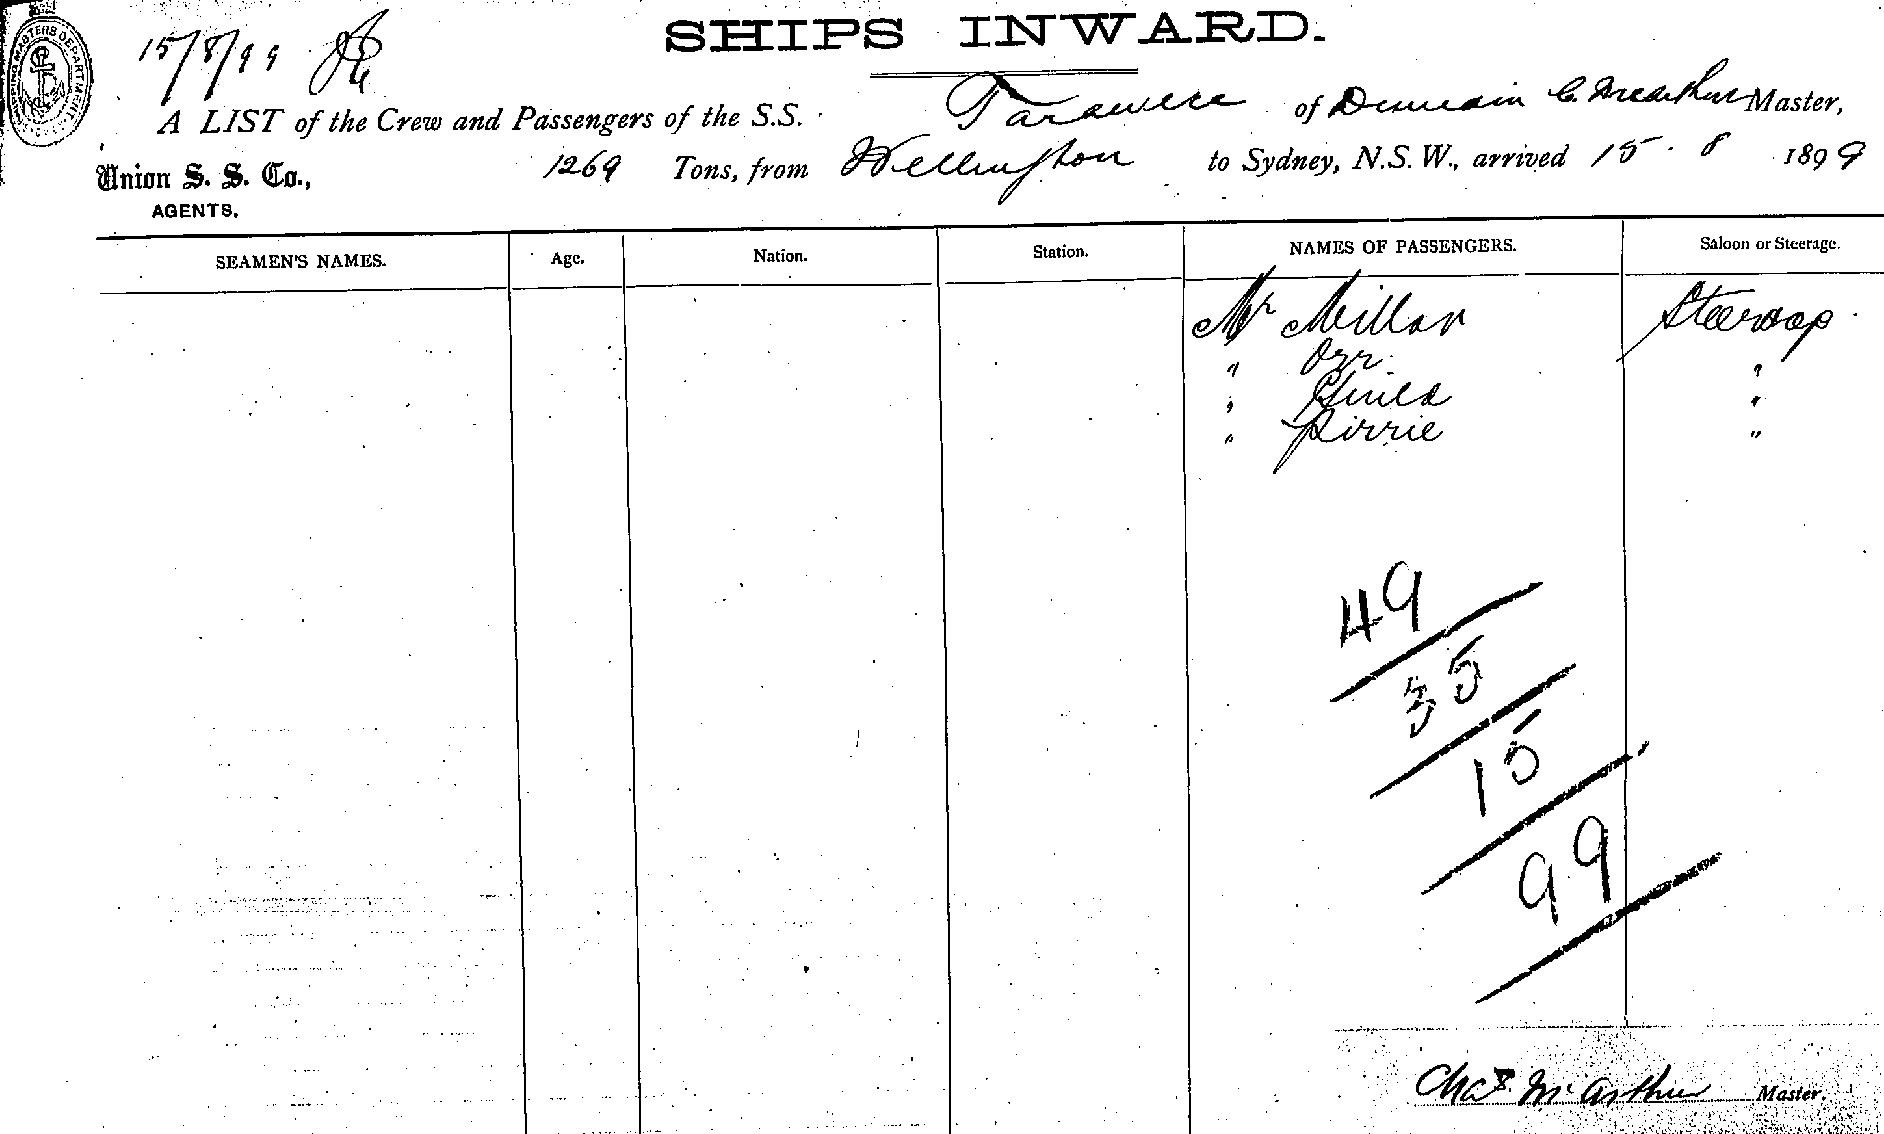 15/8/99
SHIPS INWARD.
A LIST of the Crew and Passengers of the S.S. Tarawera of Dunedin C. McArthur Master,
Union S. S. Co., 1269 Tons, from Wellington to Sydney, N.S.W., arrived 15 . 8 1899
AGENTS.
SEAMEN'S NAMES. Age. Nation. Station. NAMES OF PASSENGERS. Saloon or Steerage.
Mr Millar Steerage
" Orr "
" "
" Pirrie "
49
35
15
99
Chas McArthur Master.